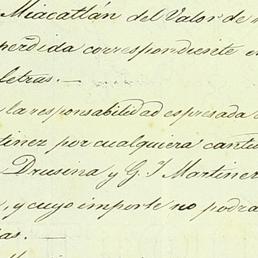 Miacatlán del Valor de
perdida correspondiente
letras.—
la responsabilidad espresada
tinez por cualquiera canti
Drusina y G. J. Martinez
, y cuyo importe no podra
as.—